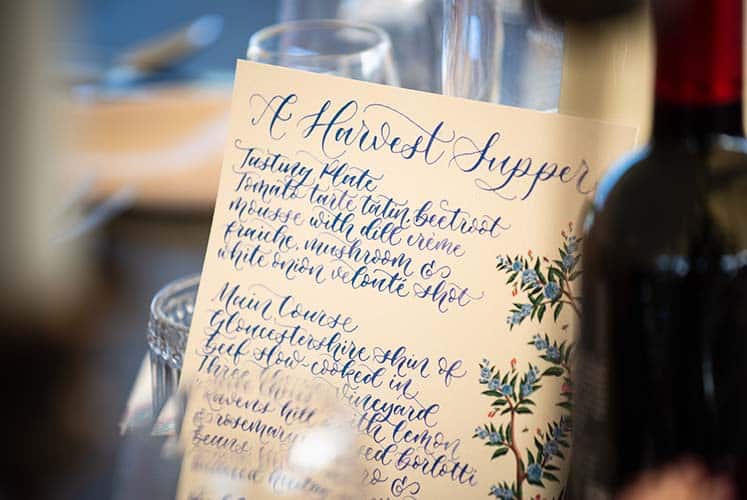 A Harvest Supper
Tasting Plate
Tomato tarte tatin, beetroot
mousse with dill crème
fraîche, mushroom &
white onion velouté shot
Main Course
Gloucestershire shin of
beef slow-cooked in
Three Vineyard
Ravens hill with lemon
& rosemary borlotti
beans